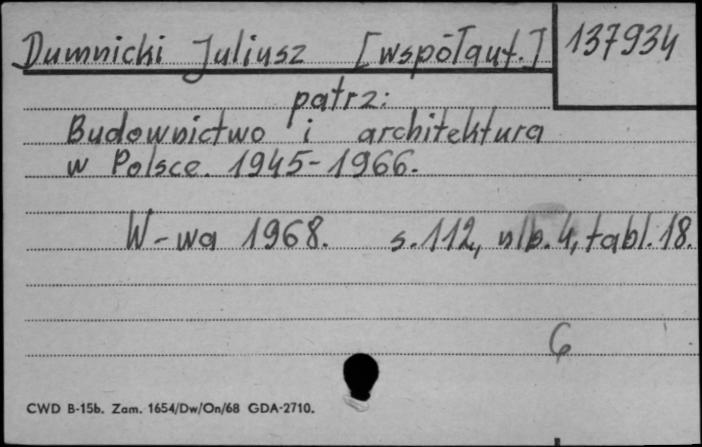 Dumnicki Juliusz [współaut.] 137934
patrz:
Budownictwo i architektura
w Polsce. 1945-1966.
W-wa 1968. s. 112, nlb. 4, tabl. 18.
6
CWD B-15b. Zam. 1654/Dw/On/68 GDA-2710.